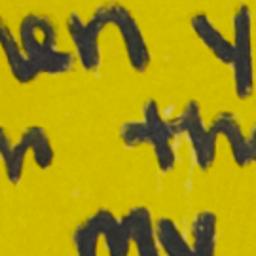 en y
n th
my